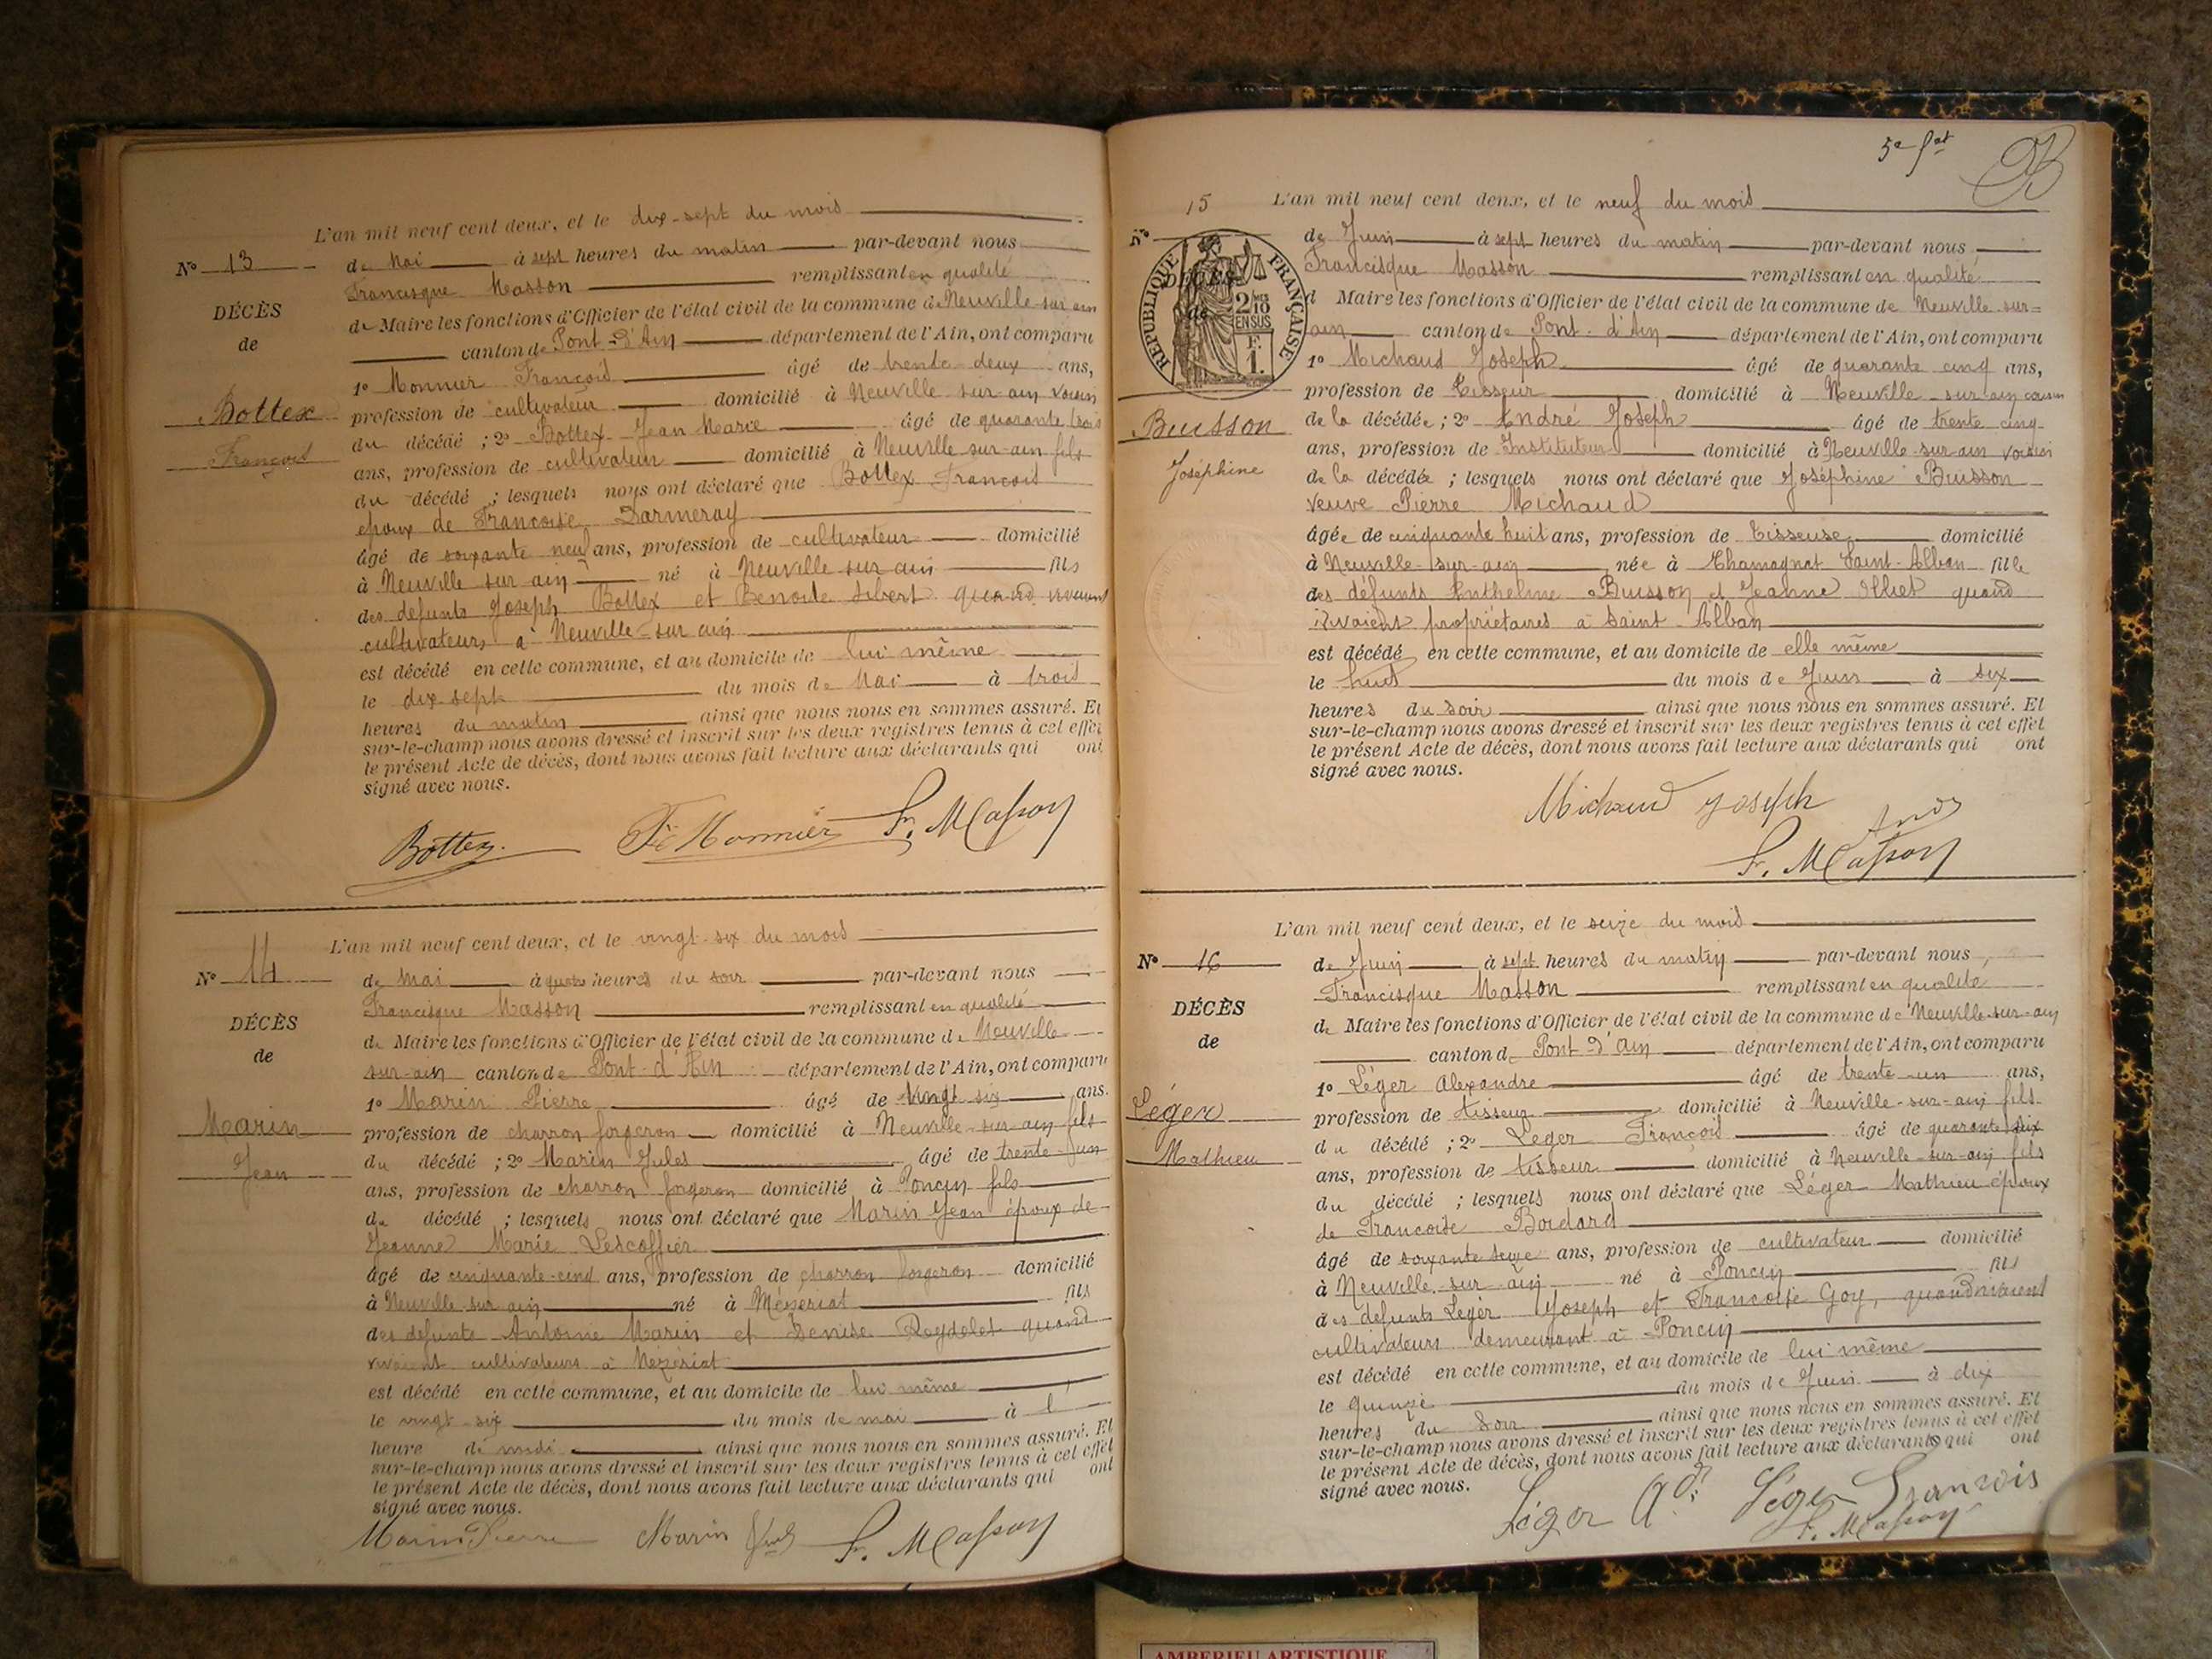 L'an mil neuf cent deux, et le dix-sept du mois
No 13
de Mai à sept heures du matin par-devant nous
Francisque Masson remplissant en qualité
DÉCÈS
de Maire les fonctions d'Officier de l'état civil de la commune de Neuville sur ain
de
canton de Pont-d'Ain département de l'Ain, ont comparu
1o Monnier François âgé de trente deux ans,
Bottex
profession de cultivateur domicilié à Neuville sur ain voisin
du décédé ; 2o Bottex Jean Marie âgé de quarante trois
François
ans, profession de cultivateur domicilié à Neuville sur-ain fils
du décédé ; lesquels nous ont déclaré que Bottex François
époux de Françoise Darmeray
âgé de soixante neuf ans, profession de cultivateur domicilié
à Neuville sur ain né à Neuville sur ain fils
des défunts Joseph Bottex et Benoite Sibert quand vivaient
cultivateurs à Neuville-sur ain
est décédé en cette commune, et au domicile de lui même
le dix-sept du mois de Mai à trois
heures du matin ainsi que nous nous en sommes assuré. Et
sur-le-champ nous avons dressé et inscrit sur les deux registres tenus à cet effet
le présent Acte de décès, dont nous avons fait lecture aux déclarants qui ont
signé avec nous.
Bottex Fs Monnier F. Masson
L'an mil neuf cent deux, et le vingt-six du mois
No 14
de Mai à quatre heures du soir par-devant nous
Francisque Masson remplissant en qualité
DÉCÈS
de Maire les fonctions d'Officier de l'état civil de la commune de Neuville
de
sur-ain canton de Pont-d'Ain département de l'Ain, ont comparu
1o Marin Pierre âgé de vingt six ans.
Marin
profession de charron forgeron domicilié à Neuville-sur-ain fils
du décédé ; 2o Marin Jules âgé de trente-un
Jean
ans, profession de charron forgeron domicilié à Poncin fils
du décédé ; lesquels nous ont déclaré que Marin Jean époux de
Jeanne Marie Lescoffier
âgé de cinquante-cinq ans, profession de charron forgeron domicilié
à Neuville sur ain né à Mézériat fils
des défunts Antoine Marin et Denise Reydelet quand
vivaient cultivateurs à Mézériat
est décédé en cette commune, et au domicile de lui même
le vingt-six du mois de mai à l
heure de midi ainsi que nous nous en sommes assuré. Et
sur-le-champ nous avons dressé et inscrit sur les deux registres tenus à cet effet
le présent Acte de décès, dont nous avons fait lecture aux déclarants qui ont
signé avec nous.
Marin Pierre Marin Jules F. Masson
5e
15 L'an mil neuf cent deux, et le neuf du mois
No
de Juin à sept heures du matin par-devant nous
Francisque Masson remplissant en qualité
RÉPUBLIQUE FRANÇAISE
2 10 EN SUS
F. 1.
DÉCÈS
de
d Maire les fonctions d'Officier de l'état civil de la commune de Neuville-sur-
ain canton de Pont-d'Ain département de l'Ain, ont comparu
1o Michaud Joseph âgé de quarante cinq ans,
profession de Tisseur domicilié à Neuville-sur-ain cousin
Buisson
de la décédée ; 2o André Joseph âgé de trente cinq
ans, profession de Instituteur domicilié à Neuville-sur-ain voisin
Joséphine
de la décédée ; lesquels nous ont déclaré que Joséphine Buisson
veuve Pierre Michaud
âgée de cinquante huit ans, profession de Tisseuse domicilié
à Neuville-sur-ain née à Chamagnat Saint-Alban fille
des défunts Anthelme Buisson et Jeanne Olliet quand
vivaient propriétaires à Saint-Alban
est décédé en cette commune, et au domicile de elle même
le huit du mois de Juin à six
heures du soir ainsi que nous nous en sommes assuré. Et
sur-le-champ nous avons dressé et inscrit sur les deux registres tenus à cet effet
le présent Acte de décès, dont nous avons fait lecture aux déclarants qui ont
signé avec nous.
Michaud Joseph
F. Masson
L'an mil neuf cent deux, et le seize du mois
No 16
de Juin à sept heures du matin par-devant nous
Francisque Masson remplissant en qualité
DÉCÈS
de Maire les fonctions d'Officier de l'état civil de la commune de Neuville-sur-ain
de
canton de Pont-d'Ain département de l'Ain, ont comparu
1o Léger Alexandre âgé de trente-un ans,
Léger
profession de tisseur domicilié à Neuville-sur-ain fils
du décédé ; 2o Léger François âgé de quarante
Mathieu
ans, profession de tisseur domicilié à Neuville-sur-ain fils
du décédé ; lesquels nous ont déclaré que Léger Mathieu époux
de Françoise Boidard
âgé de soixante seize ans, profession de cultivateur domicilié
à Neuville-sur-ain né à Poncin fils
des défunts Léger Joseph et Françoise Goy, quand vivaient
cultivateurs demeurant à Poncin
est décédé en cette commune, et au domicile de lui même
le quinze du mois de Juin à dix
heures du soir ainsi que nous nous en sommes assuré. Et
sur-le-champ nous avons dressé et inscrit sur les deux registres tenus à cet effet
le présent Acte de décès, dont nous avons fait lecture aux déclarants qui ont
signé avec nous.
Léger Léger François
F. Masson
AMBERIEU ARTISTIQUE